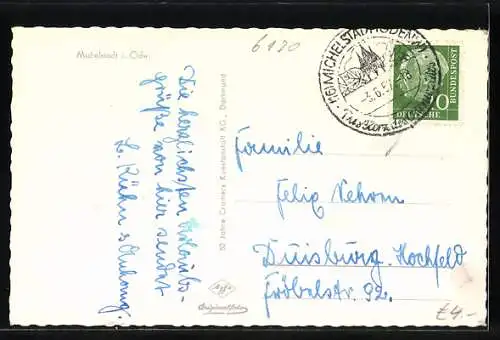 Michelstadt i. Odw.
6180
Die herzlichsten Urlaubs-
grüße von hier sendet
L. Kühn u Anhang.
50 Jahre Cramers Kunstanstalt KG., Dortmund
Agfa
Originalfoto
(16) MICHELSTADT (ODENW)
-3.6.5
DEUTSCHE
BUNDESPOST
Familie
Felix Nehrom
Duisburg. Hochfeld
Fröbelstr. 92.
£4.-